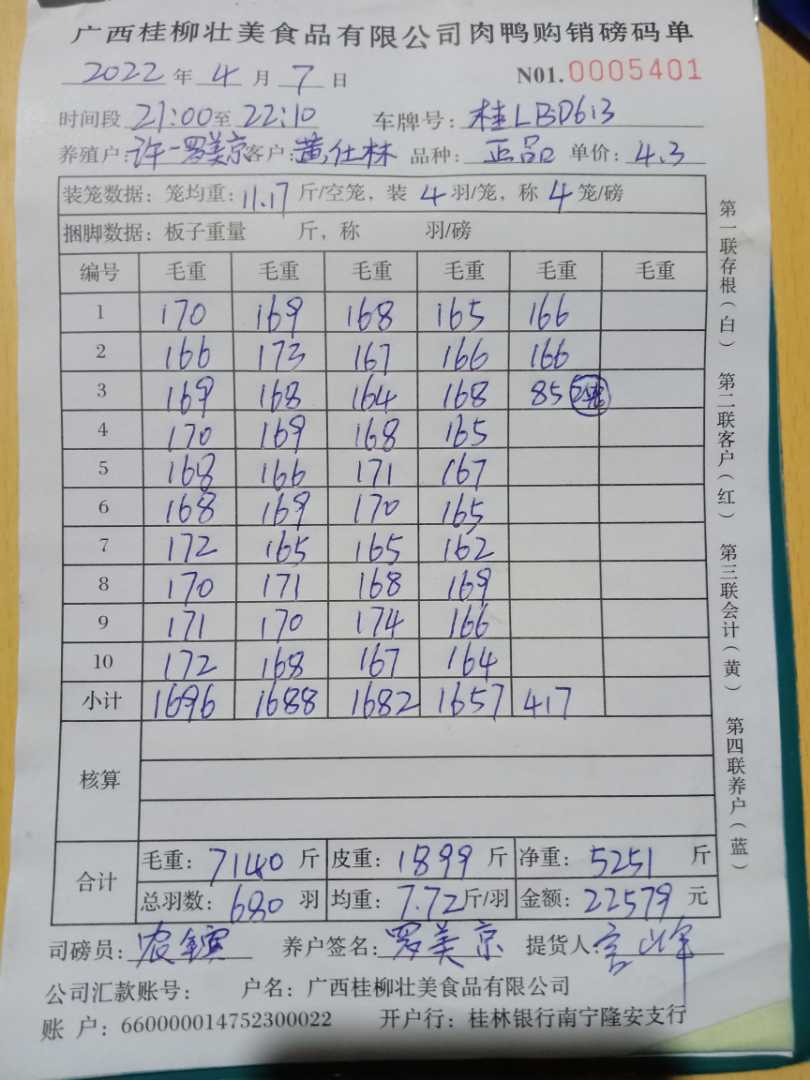 广西桂柳壮美食品有限公司肉鸭购销磅码单
2022 年 4 月 7 日 N01.0005401
时间段 21:00至 22:10 车牌号: 桂LBD613
养殖户: 许一罗美京 客户: 黄仕林 品种: 正品 单价: 4.3
装笼数据: 笼均重: 11.17 斤/空笼, 装 4 羽/笼, 称 4 笼/磅
捆脚数据: 板子重量 斤, 称 羽/磅
编号 毛重 毛重 毛重 毛重 毛重 毛重
1 170 169 168 165 166
2 166 173 167 166 166
3 169 168 164 168 85
4 170 169 168 165
5 168 166 171 167
6 168 169 170 165
7 172 165 165 162
8 170 171 168 169
9 171 170 174 166
10 172 168 167 164
小计 1696 1688 1682 1657 417
核算
合计
毛重: 7140 斤 皮重: 1899 斤 净重: 5251 斤
总羽数: 680 羽 均重: 7.72斤/羽 金额: 22579 元
司磅员: 养户签名: 罗美京 提货人:
公司汇款账号: 户名: 广西桂柳壮美食品有限公司
账 户: 660000014752300022 开户行: 桂林银行南宁隆安支行
第一联存根(白) 第二联客户(红) 第三联会计(黄) 第四联养户(蓝)